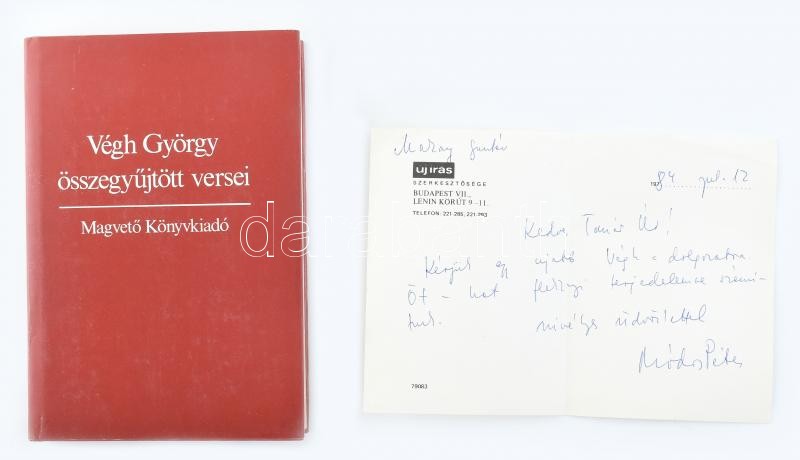 Végh György
összegyűjtött versei
Magvető Könyvkiadó
Makay Gusztáv
új írás
SZERKESZTŐSÉGE
BUDAPEST VII.,
LENIN KÖRÚT 9–11.
TELEFON: 221-285, 221-293
1984 júl. 12
Kedves Tanár Úr!
Kérjük egy újabb Végh
Öt – hat flekknyi terjedelemre számí-
tunk. szívélyes üdvözlettel
Módos Péter
79083
darabanth